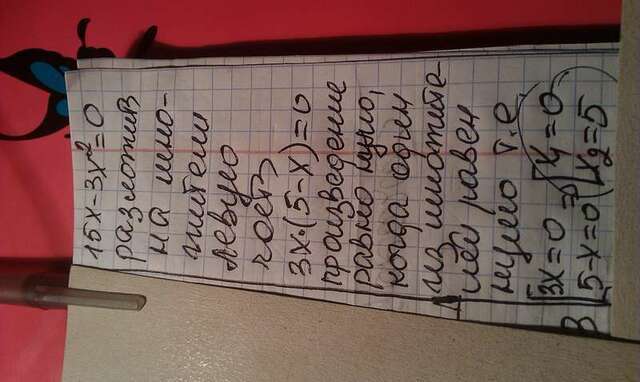 15x-3x²=0
разложив
на мно-
жители
левую
часть
3x·(5-x)=0
произведение
равно нулю,
когда один
из множите-
лей равен
нулю т.е.
[3x=0 => [x₁=0
[5-x=0 [x₂=5